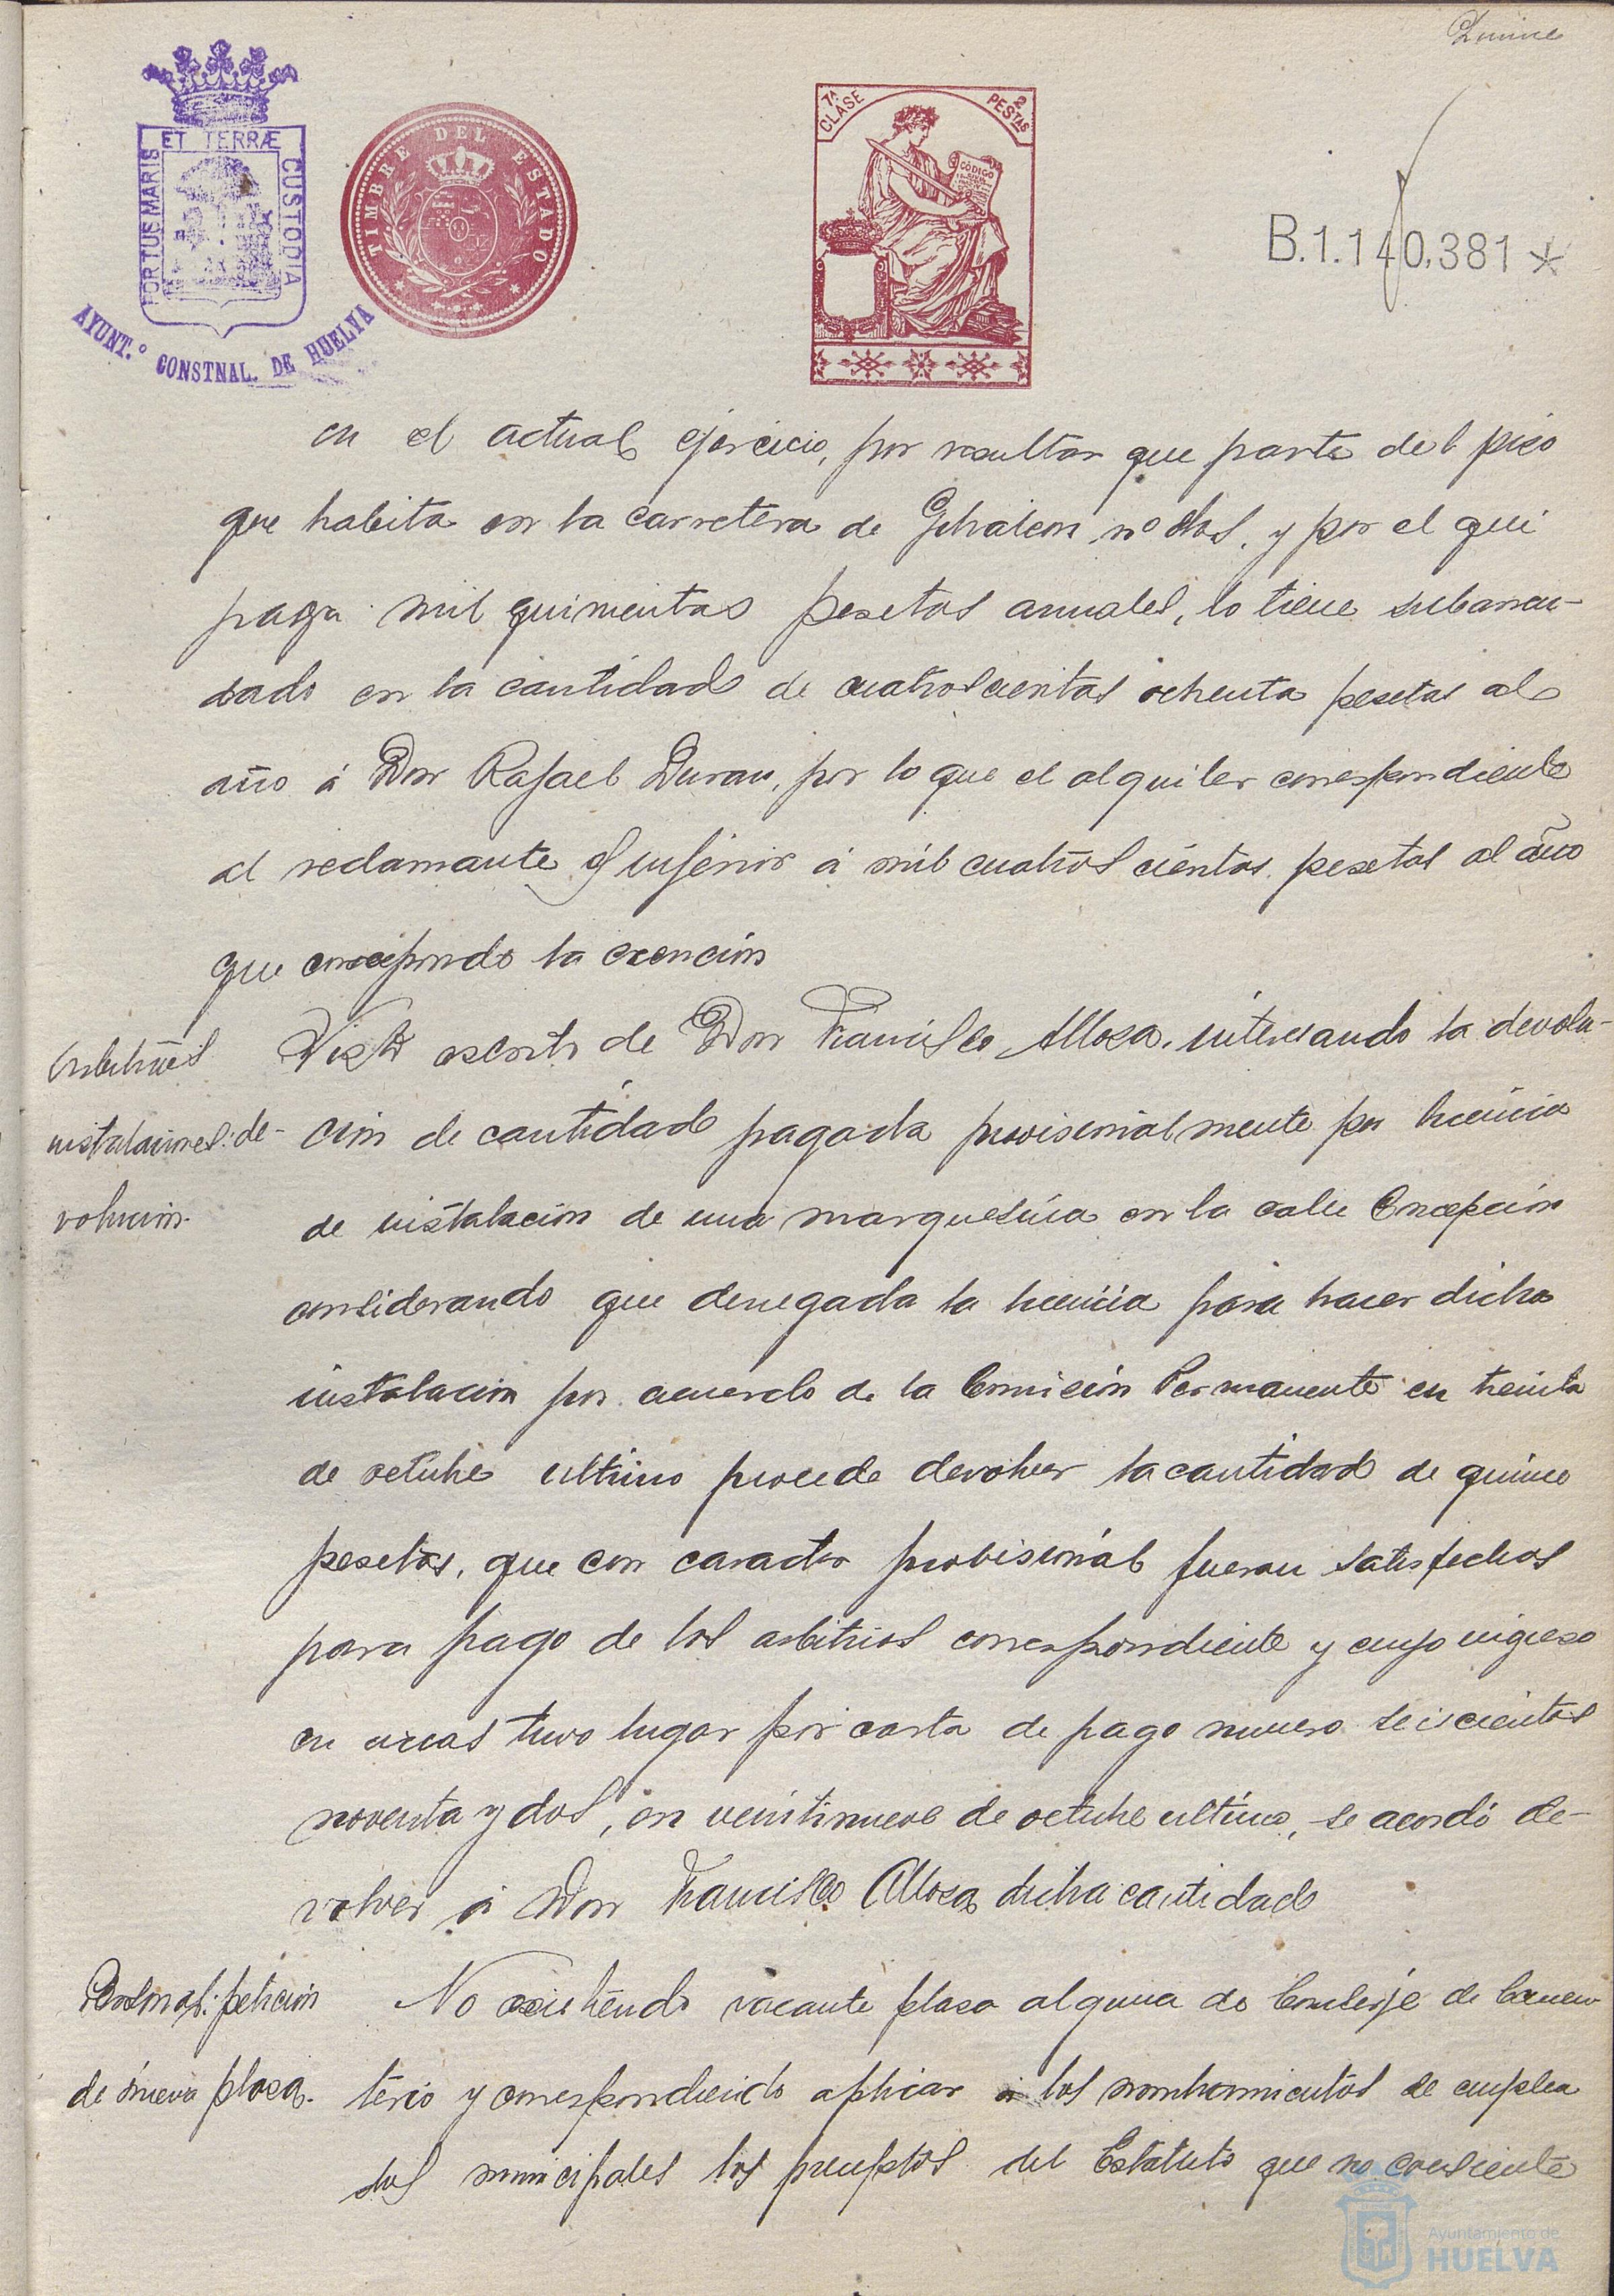 Quince
PORTUS MARIS ET TERRÆ CUSTODIA
AYUNT.º CONSTNAL. DE HUELVA
TIMBRE DEL ESTADO
7ª CLASE
2 PESTAS
CÓDIGO
B.1.140,381 *
en el actual ejercicio, por resultar que parte del piso
que habita en la carretera de Gibraleon nº dos, y por el que
paga mil quinientas pesetas anuales, lo tiene subarren-
dado en la cantidad de cuatroscientas ochenta pesetas al
año á Don Rafael Duran, por lo que el alquiler correspondiente
al reclamante es inferior á mil cuatros cientas pesetas al año
que corresponde la exención
Arbitrios
instalaciones: de-
volucion.
Visto escrito de Don Francisco Allosa, interesando la devolu-
cion de cantidad pagada provisionalmente por licencia
de instalacion de una marquesina en la calle Concepción
considerando que denegada la licencia para hacer dicha
instalacion por acuerdo de la Comisión Permanente en treinta
de octubre ultimo procede devolver la cantidad de quince
pesetas, que con caracter provisional fueron satisfechas
para pago de los arbitrios correspondiente y cuyo ingreso
en arcas tuvo lugar por carta de pago numero seiscientos
noventa y dos, en veintinueve de octubre ultimo, se acordó de-
volver á Don Francisco Allosa dicha cantidad
Personal: peticion
de nueva plaza.
No existiendo vacante plaza alguna de Conserje de Cemen
terio y correspondiendo aplicar á los nombramientos de emplea
dos municipales los preceptos del Estatuto que no consiente
Ayuntamiento de
HUELVA